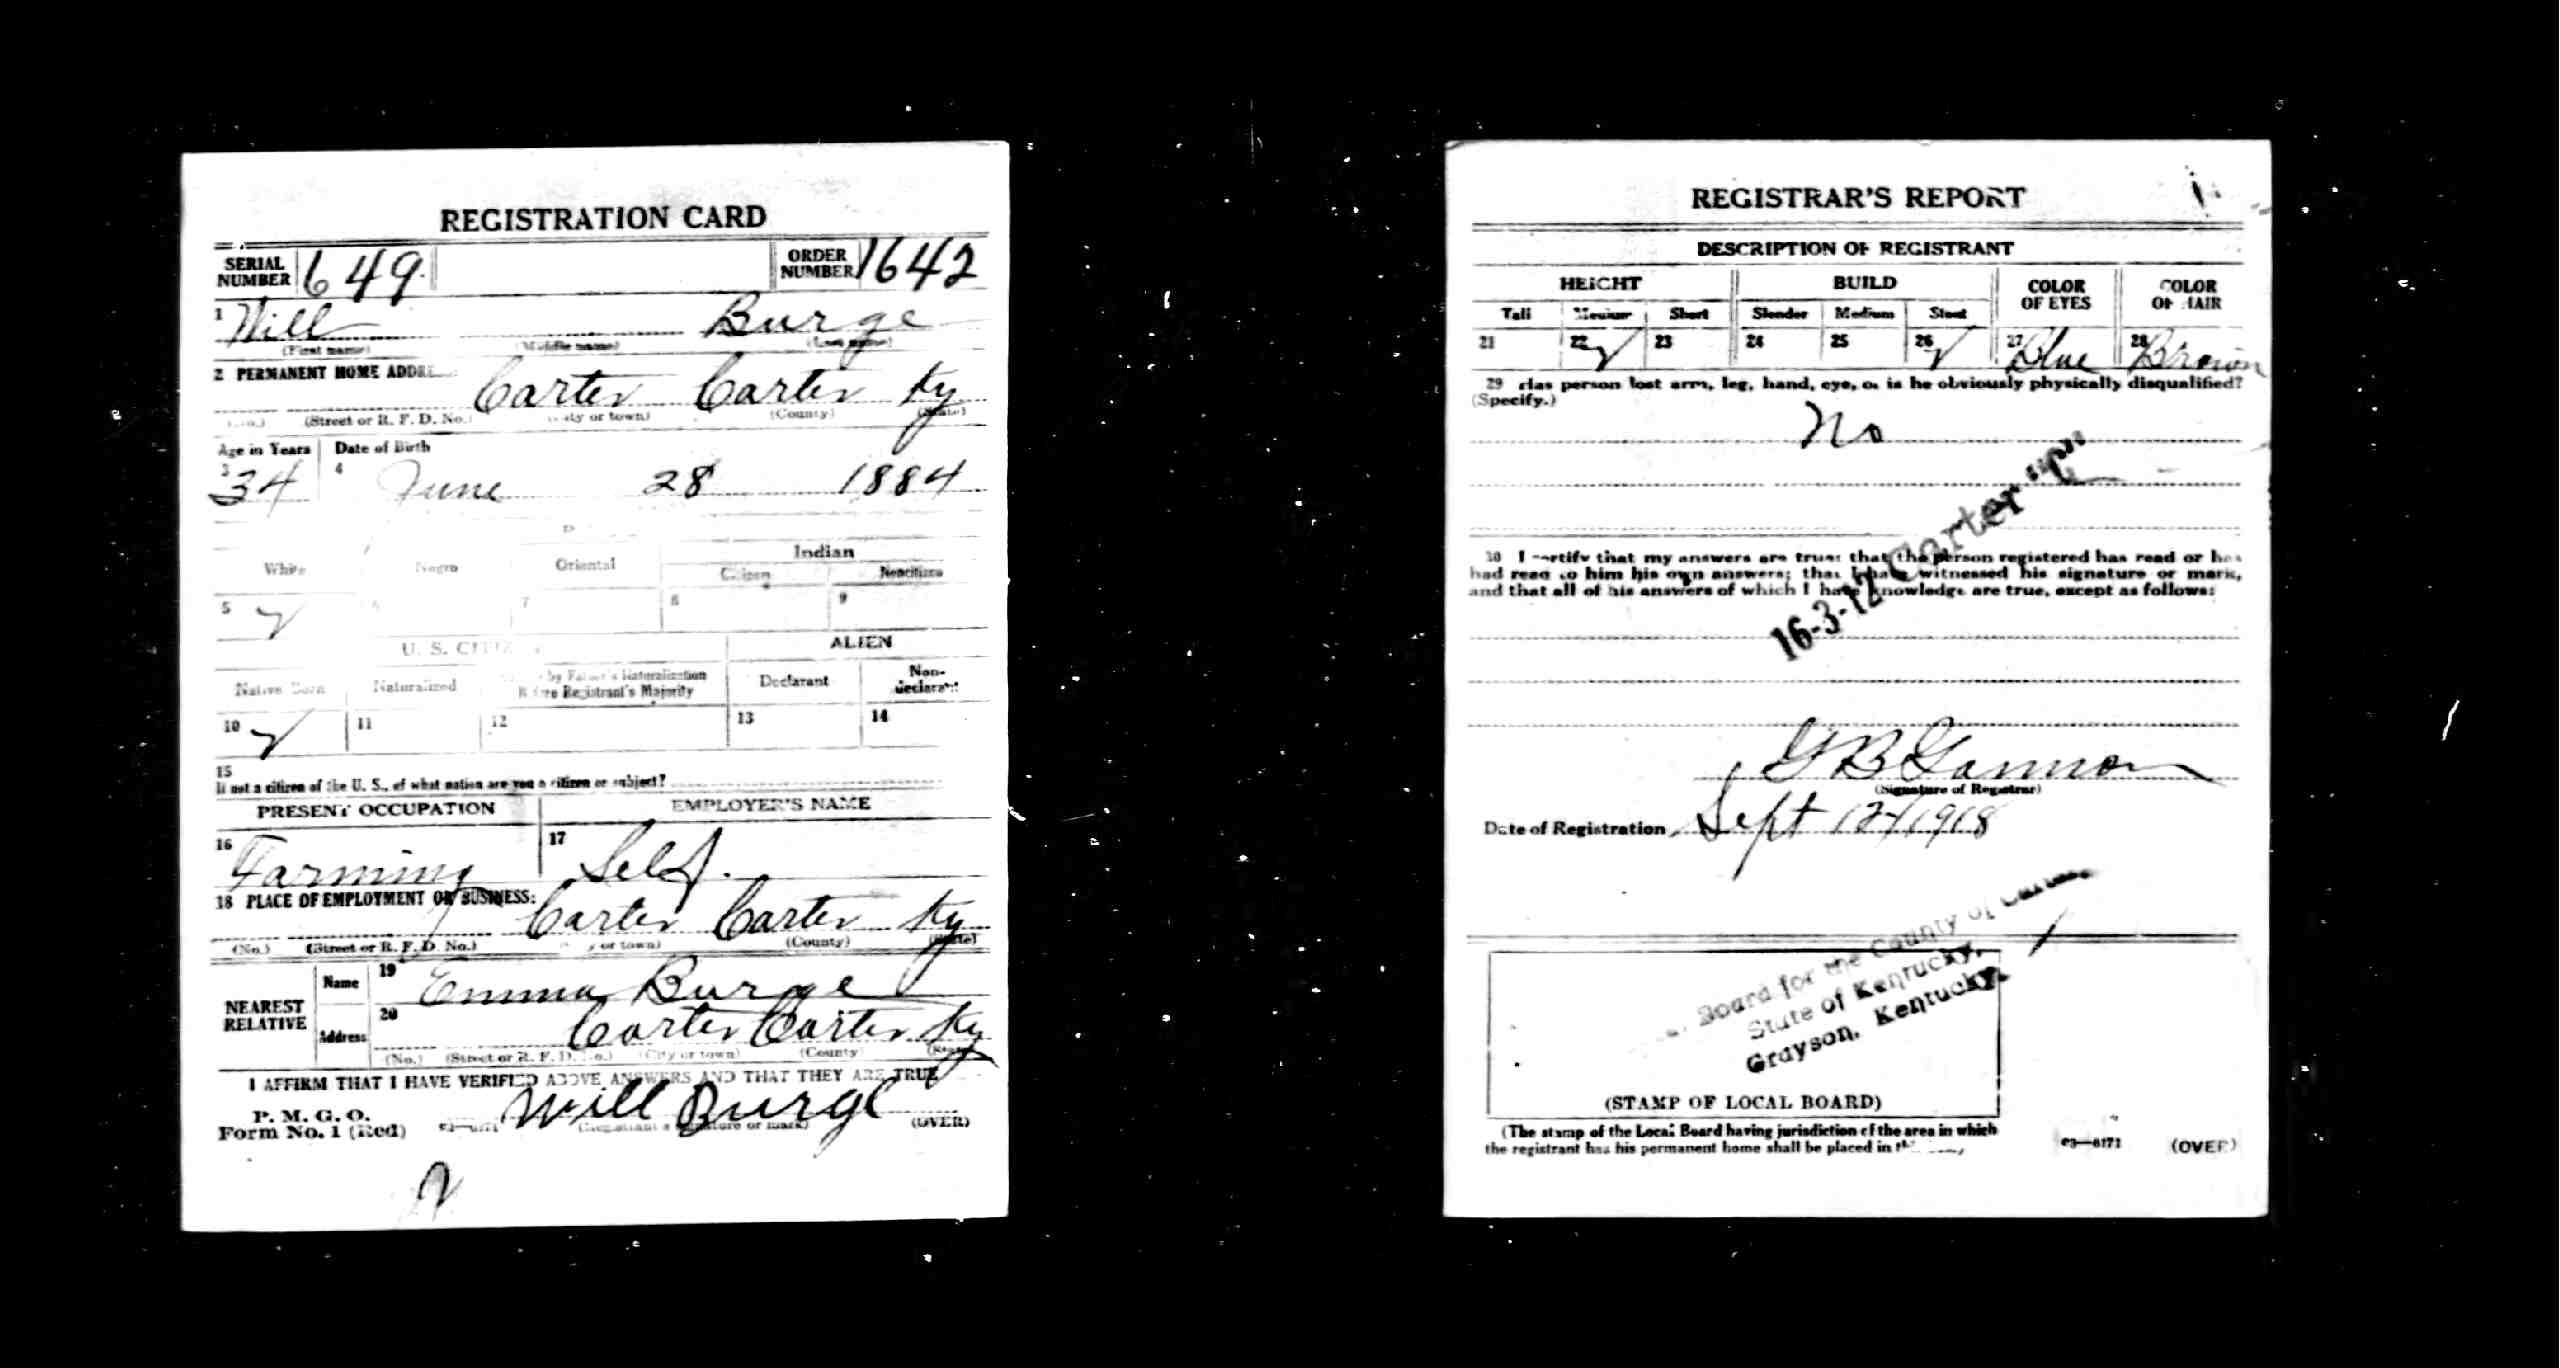 REGISTRATION CARD
SERIAL NUMBER 649 ORDER NUMBER 1642
1 Will Burge
(First name) (Middle name) (Last name)
2 PERMANENT HOME ADDRE
Carter Carter Ky
(Street or R. F. D. No.) (City or town) (County) (State)
Age in Years Date of Birth
3 34 4 June 28 1884
White Negro Oriental Indian
Citizen Noncitizen
5 ✓ 6 7 8 9
U. S. CITIZ ALIEN
Native Born Naturalized by Father's Naturalization Before Registrant's Majority Declarant Non-declarant
10 ✓ 11 12 13 14
15
If not a citizen of the U. S., of what nation are you a citizen or subject?
PRESENT OCCUPATION EMPLOYER'S NAME
16 Farming 17 Self.
18 PLACE OF EMPLOYMENT OR BUSINESS:
Carter Carter Ky
(No.) (Street or R. F. D. No.) (City or town) (County) (State)
NEAREST RELATIVE Name 19 Emma Burge
Address 20 Carter Carter Ky
(No.) (Street or R. F. D. No.) (City or town) (County) (State)
I AFFIRM THAT I HAVE VERIFIED ABOVE ANSWERS AND THAT THEY ARE TRUE
P. M. G. O.
Form No. 1 (Red) Will Burge (OVER)
(Registrant's signature or mark)
REGISTRAR'S REPORT
DESCRIPTION OF REGISTRANT
HEIGHT BUILD COLOR OF EYES COLOR OF HAIR
Tall Medium Short Slender Medium Stout
21 22 ✓ 23 24 25 26 ✓ 27 Blue 28 Brown
29 Has person lost arm, leg, hand, eye, or is he obviously physically disqualified?
(Specify.)
No
16-3-12 Carter "C"
30 I certify that my answers are true; that the person registered has read or has
had read to him his own answers; that I have witnessed his signature or mark,
and that all of his answers of which I have knowledge are true, except as follows:
G B Gannon
(Signature of Registrar)
Date of Registration Sept 12 1918
Board for the County of Carter
State of Kentucky,
Grayson, Kentucky.
(STAMP OF LOCAL BOARD)
(The stamp of the Local Board having jurisdiction of the area in which
the registrant has his permanent home shall be placed in
03—6171 (OVER)